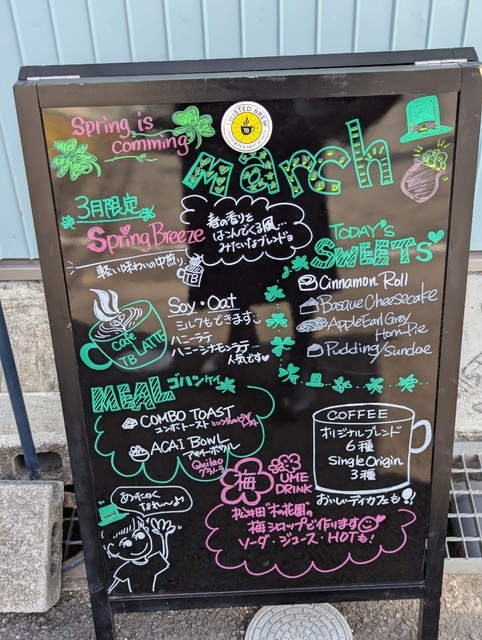 Spring is
comming
TWISTED BREW
TB
March
3月限定
Spring Breeze
軽い味わいの中煎り
TB
春の香りを
はこんでくる風…
みたいなブレンドョ
TODAY'S
SWEETS
Cinnamon Roll
Basque Cheesecake
Apple Earl Grey
Hom Pie
Pudding/Sundae
cafe
LATTE
TB
Soy・Oat
ミルクもできます
ハニーラテ
ハニーシナモンラテ…
人気です
MEAL ゴハンケイ
COMBO TOAST
コンボトースト
ACAI BOWL
アサイーボウル
Quilao
グラノーラ
COFFEE
オリジナルブレンド
6種
Single Origin
3種
おいしいディカフェも!
梅 UME
DRINK
松井田"木の花園"の
梅シロップで作ります
ソーダ・ジュース・HOTも!
あったかく
なぁれ〜い♪